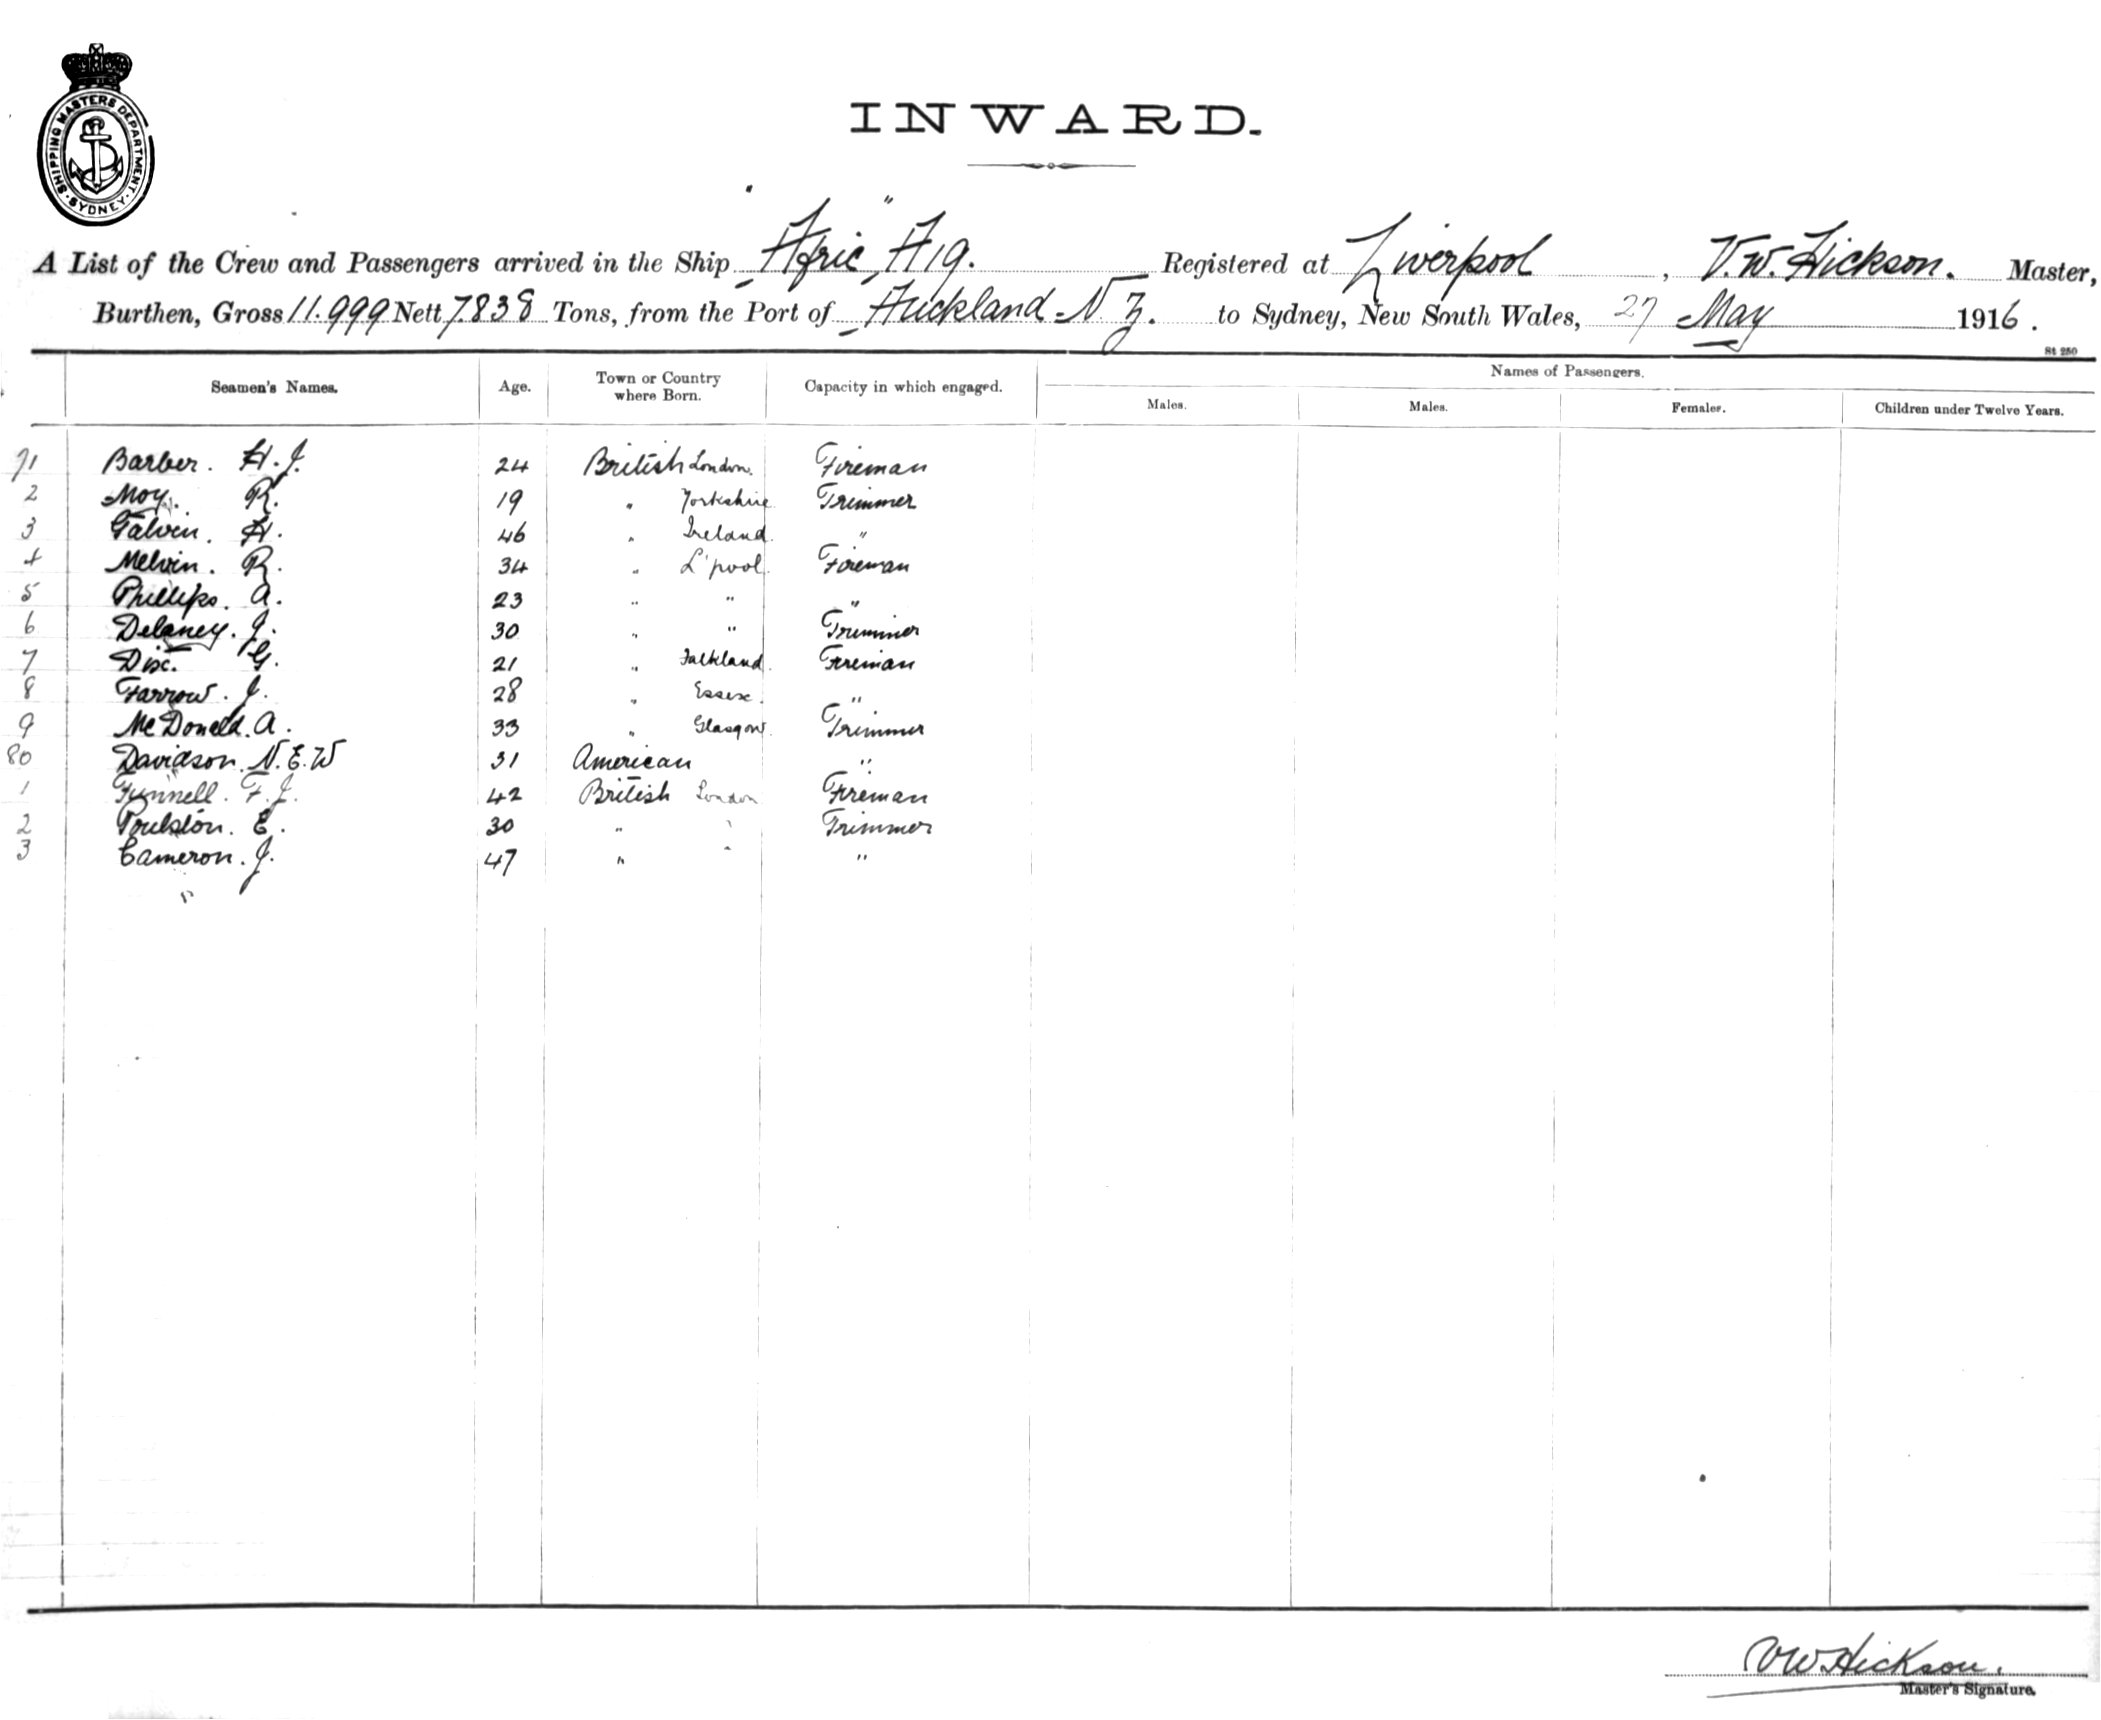 SHIPPING MASTERS DEPARTMENT · SYDNEY ·
INWARD.
A List of the Crew and Passengers arrived in the Ship "Afric" A19. Registered at Liverpool, V.W. Hickson. Master,
Burthen, Gross 11.999 Nett 7838 Tons, from the Port of Auckland N.Z. to Sydney, New South Wales, 27 May 1916.
St 250
Seamen's Names. Age. Town or Country where Born. Capacity in which engaged. Names of Passengers.
Males. Males. Females. Children under Twelve Years.
71 Barber. H.J. 24 British London. Fireman
2 Moy. R. 19 " Yorkshire Trimmer
3 Galvin. H. 46 " Ireland. "
4 Melvin. R. 34 " L'pool. Fireman
5 Phillips. A. 23 " " "
6 Delaney. J. 30 " " Trimmer
7 Disc. G. 21 " Falkland. Fireman
8 Farrow. J. 28 " Essex. "
9 McDonald. A. 33 " Glasgow. Trimmer
80 Davidson. N.E.W 31 American "
1 Funnell. F.J. 42 British London Fireman
2 Poulston. E. 30 " " Trimmer
3 Cameron. J. 47 " " "
VW Hickson.
Master's Signature.